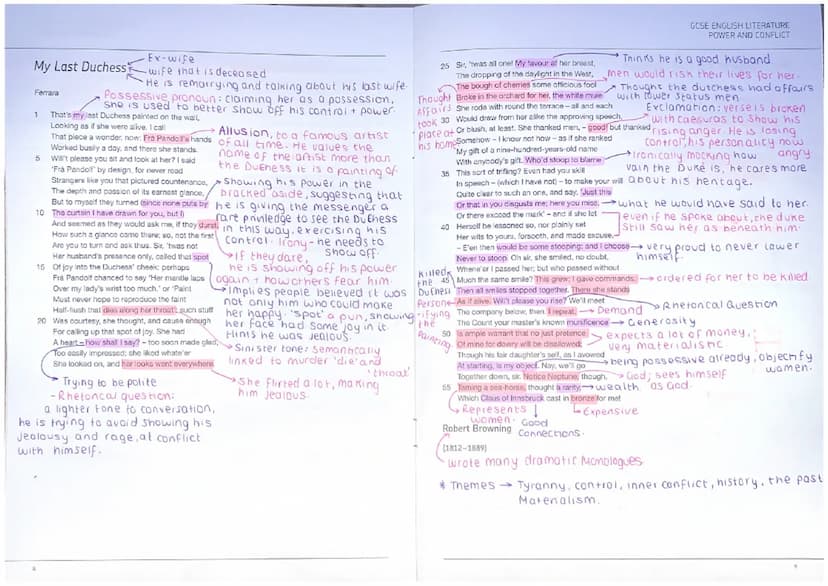 My Last Duchess
Ex-wife
wife that is deceased
He is remarrying and talking about his last wife.
Ferrara
Possessive pronoun: claiming her as a possession,
She is used to better show off his control + power
1 That's my last Duchess painted on the wall,
Looking as if she were alive. I call
That piece a wonder, now; Frà Pandolf's hands
Worked busily a day, and there she stands.
5 Will't please you sit and look at her? I said
'Frà Pandolf' by design, for never read
Strangers like you that pictured countenance,
The depth and passion of its earnest glance,
But to myself they turned (since none puts by
10 The curtain I have drawn for you, but I)
And seemed as they would ask me, if they durst,
How such a glance came there; so, not the first
Are you to turn and ask thus. Sir, 'twas not
Her husband's presence only, called that spot
15 Of joy into the Duchess' cheek: perhaps
Frà Pandolf chanced to say 'Her mantle laps
Over my lady's wrist too much,' or 'Paint
Must never hope to reproduce the faint
Half-flush that dies along her throat', such stuff
20 Was courtesy, she thought, and cause enough
For calling up that spot of joy. She had
A heart – how shall I say? – too soon made glad,
Too easily impressed; she liked whate'er
She looked on, and her looks went everywhere
Allusion, to a famous artist
of all time. He values the
name of the artist more than
the Duchess it is a painting of.
Showing his power in the
bracked aside, suggesting that
he is giving the messenger a
rare privledge to see the Duchess
in this way, exercising his
control. Irony – he needs to
show off.
If they dare,
he is showing off his power
again + how others fear him
Implies people believed it was
not only him who could make
her happy. 'Spot' a pun, showing
her face had some joy in it
Hints he was jealous.
Sinister tone: Semantically
linked to murder 'die' and
'throat'
She flirted a lot, making
him jealous.
Trying to be polite
- Rhetorical question:
a lighter tone to conversation,
he is trying to avoid showing his
jealousy and rage, at conflict
with himself.
8
GCSE ENGLISH LITERATURE
POWER AND CONFLICT
25 Sir, 'twas all one! My favour at her breast,
The dropping of the daylight in the West,
The bough of cherries some officious fool
Broke in the orchard for her, the white mule
She rode with round the terrace – all and each
30 Would draw from her alike the approving speech,
Or blush, at least. She thanked men, – good! but thanked
Somehow – I know not how – as if she ranked
My gift of a nine-hundred-years-old name
With anybody's gift. Who'd stoop to blame
35 This sort of trifling? Even had you skill
In speech – (which I have not) – to make your will
Quite clear to such an one, and say, 'Just this
Or that in you disgusts me; here you miss,
Or there exceed the mark' – and if she let
40 Herself be lessoned so, nor plainly set
Her wits to yours, forsooth, and made excuse,
– E'en then would be some stooping; and I choose
Never to stoop. Oh sir, she smiled, no doubt,
Whene'er I passed her; but who passed without
45 Much the same smile? This grew; I gave commands;
Then all smiles stopped together. There she stands
As if alive. Will't please you rise? We'll meet
The company below, then. I repeat,
The Count your master's known munificence
50 Is ample warrant that no just pretence
Of mine for dowry will be disallowed;
Though his fair daughter's self, as I avowed
At starting, is my object. Nay, we'll go
Together down, sir. Notice Neptune, though,
55 Taming a sea-horse, thought a rarity,
Which Claus of Innsbruck cast in bronze for me!
Thinks he is a good husband
men would risk their lives for her.
Thought the dutchess had affairs
with lower status men
Thought
Affairs
took
place at
his home
Exclamation: verse is broken
with caesuras to show his
rising anger. He is losing
control, his personality now
angry
Ironically mocking how
vain the Duke is, he cares more
about his heritage.
what he would have said to her.
even if he spoke about, the duke
Still saw her as beneath him.
very proud to never lower
himself.
ordered for her to be killed
Killed
the
Dutchess
Person-
ifying
the
painting
Rhetorical Question
Demand
Generosity
expects a lot of money,
very materialistic
being possessive already, objectify
women.
God; sees himself
as God.
wealth
Expensive
Represents
women.
Good
connections.
Robert Browning
(1812–1889)
wrote many dramatic monologues
* Themes → Tyranny, control, inner conflict, history, the past
Materialism.
9